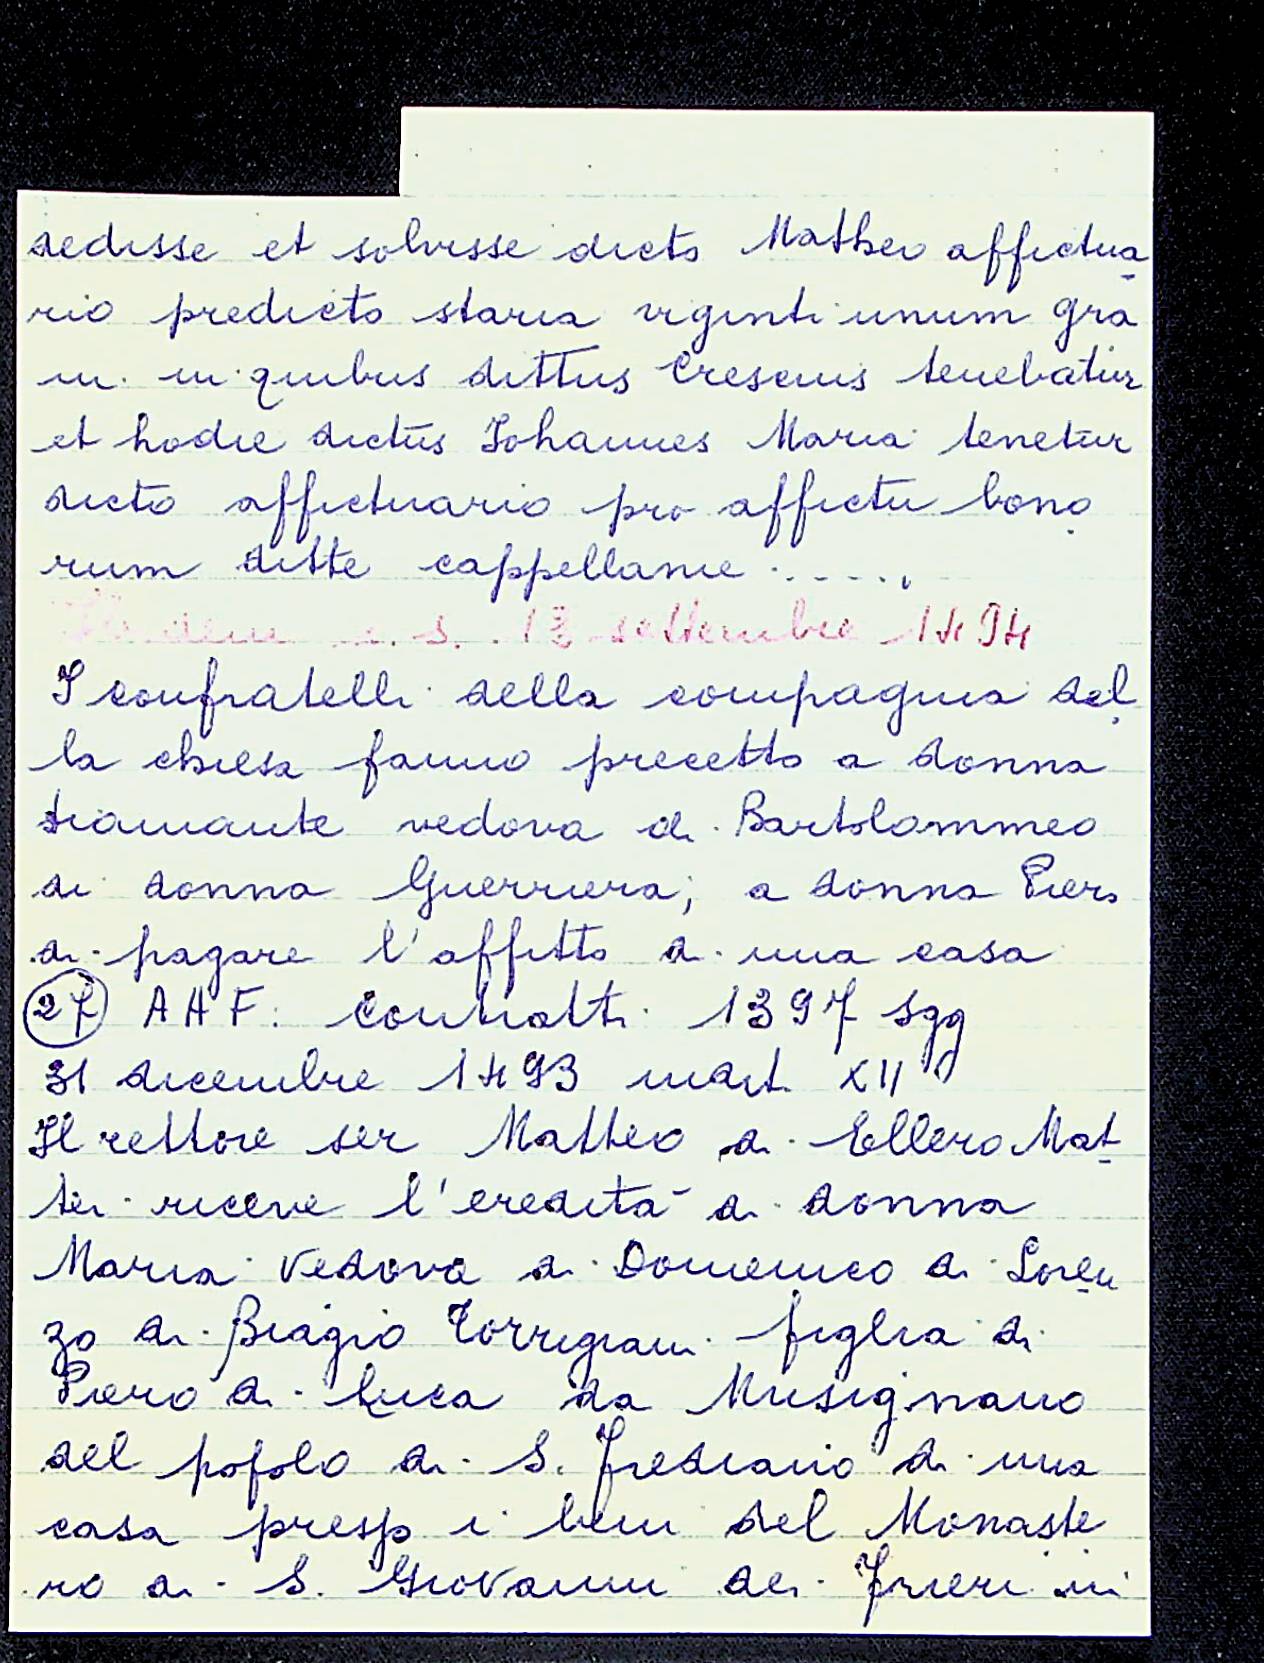 dedisse et solvisse dicto Matheo affictua
rio predicto staria viginti unum gra
ni in quibus dittus Cresenis tenebatur
et hodie dictus Johannes Maria tenetur
dicto affictuario pro affictu bono
rum ditte cappellanie .....
13 settembre 1494
I confratelli della compagnia del
la chiesa fanno precetto a donna
diamante vedova di Bartolommeo
di donna Guerriera; a donna Piera
di pagare l'affitto di una casa
27 AHF. Contratti 1397 sgg
31 dicembre 1493 indit. XII
Il rettore ser Matteo di Ellero Mat
tei riceve l'eredità di donna
Maria vedova di Domenico di Loren
zo di Biagio Torrigiani figlia di
Piero di Luca da Musignano
del popolo di S. Frediano di una
casa presso i beni del Monaste
ro di S. Giovanni dei Frieri in